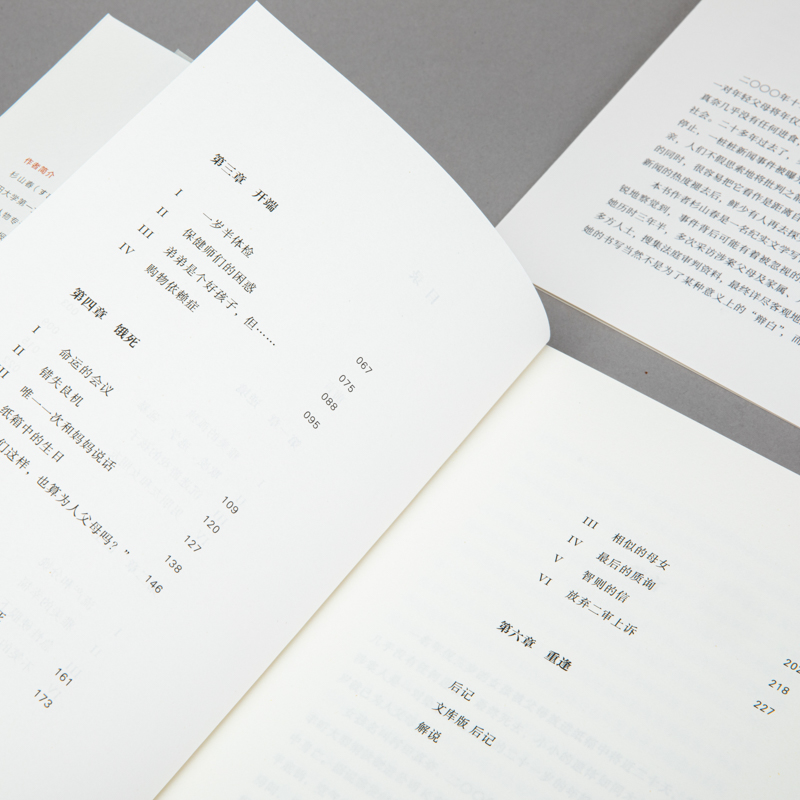 作者简介
杉山春
第三章 开端
I 一岁半体检
II 保健师们的困惑
III 弟弟是个好孩子，但……
IV 购物依赖症
067
075
088
095
第四章 饿死
I 命运的会议
II 错失良机
唯一一次和妈妈说话
纸箱中的生日
们这样，也算为人父母吗？”
109
120
127
138
146
死
161
173
III 相似的母女
IV 最后的质询
V 智则的信
VI 放弃二审上诉
第六章 重逢
后记
文库版 后记
解说
202
218
227
二〇〇〇年十
一对年轻父母将年仅
真奈几乎没有任何进食
社会。二十多年过去了，
停止，一桩桩新闻事件被曝
亲，人们不假思索地将批判之
的同时，很容易把它看作是距离自
新闻的热度褪去后，鲜少有人再去探
本书作者杉山春是一名纪实文学写
锐地察觉到，事件背后可能有着被忽视的
她历时三年半，多次采访涉案父母及家属，
多方人士，搜集法庭审判资料，最终详尽客观地
她的书写当然不是为了某种意义上的“辩白”，而